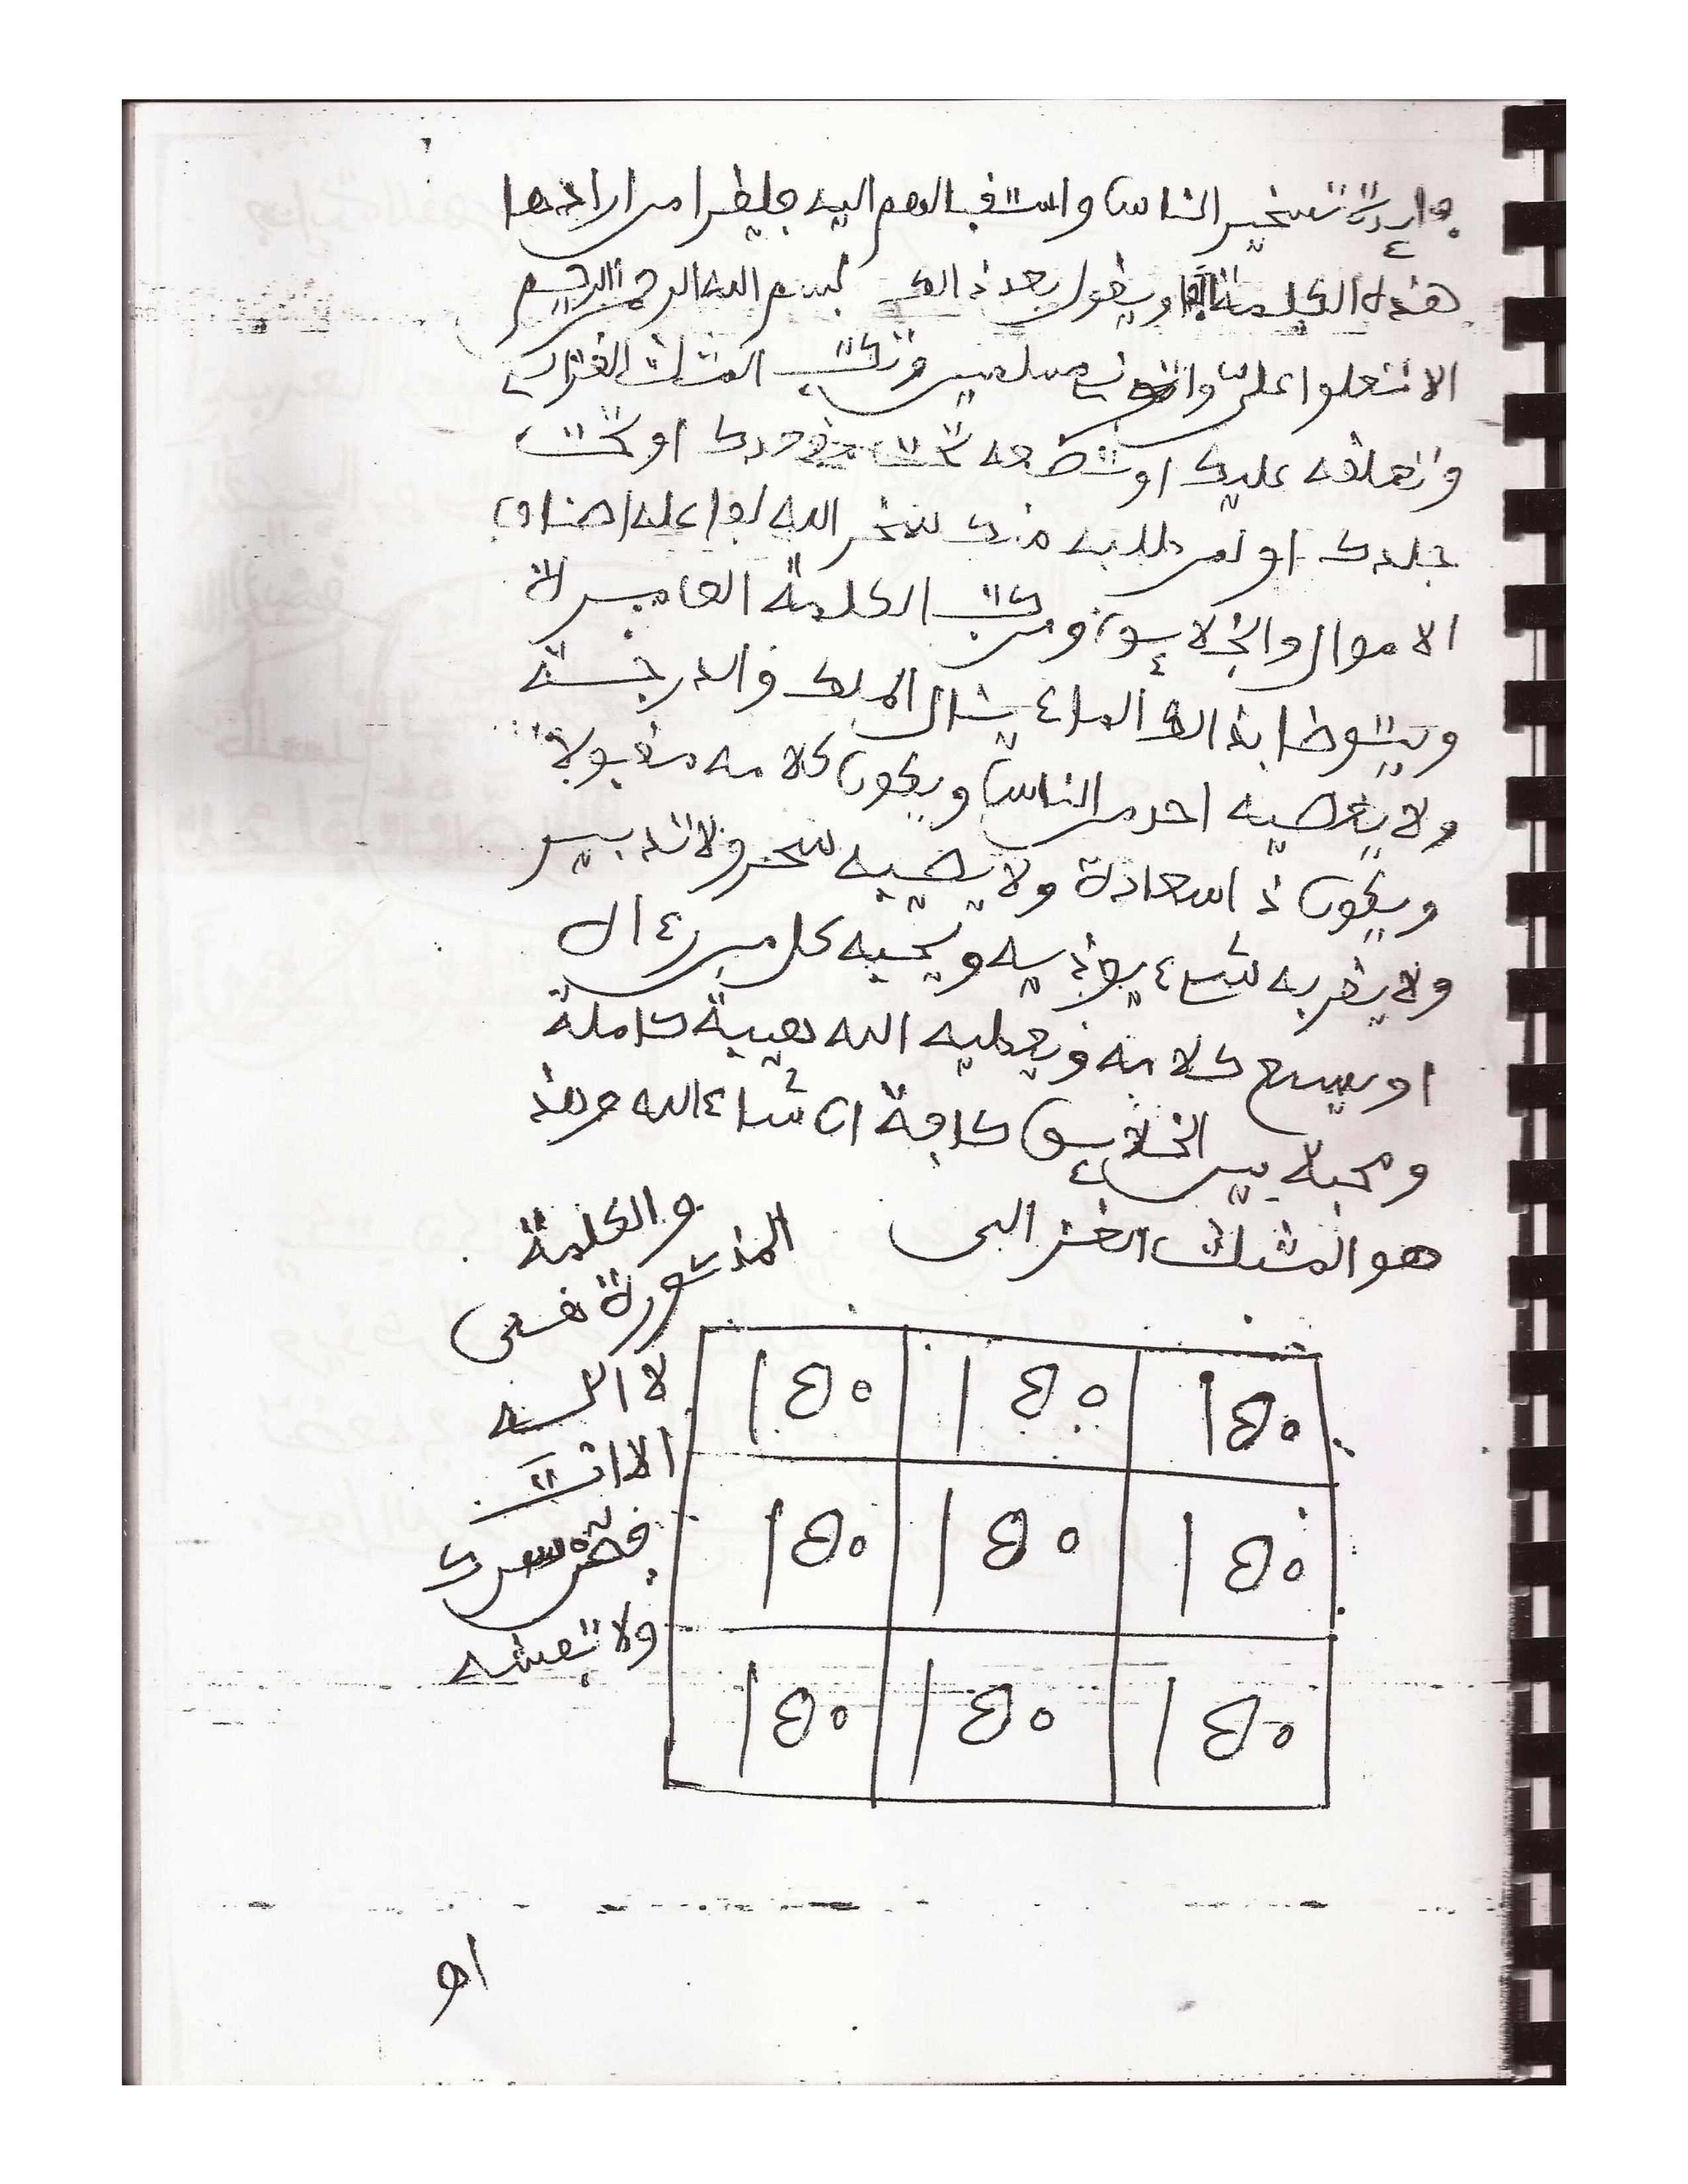 تسخير الناس واستقبالهم اليه فليقرا من ارادها
هذه الكلمة ويقول بعد ذالك بسم الله الرحمن الرحيم
الا تعلوا على واتوني مسلمين وتكتب المثلث الغزالي
وتعلقه عليك او تضعه تحت او تحت
جلدك او لمن طلبه منك سخر الله لفاعله اصناف
الاموال والخلايق ومن كتب الكلمة لا
ويتوضا بذالك الماء ينال الملك والدرجة
ولا يعصيه احد من الناس ويكون كلامه مقبولا
ويكون ذا سعادة ولا يصيبه سحر ولا تدبير
ولا يقربه شيء يوذيه ويحبه كل من رءاه
او يسمع كلامه ويعطيه الله هيبة كاملة
ومحبة بين الخلايق كافة ان شاء الله وهذ
هو المثلث الغزالي
والكلمة
المذكورة هي
لا اله
الا انت
سرك
ولا تفشه
١٥٠ ١٥٠ ١٥٠
١٥٠ ١٥٠ ١٥٠
١٥٠ ١٥٠ ١٥٠
او